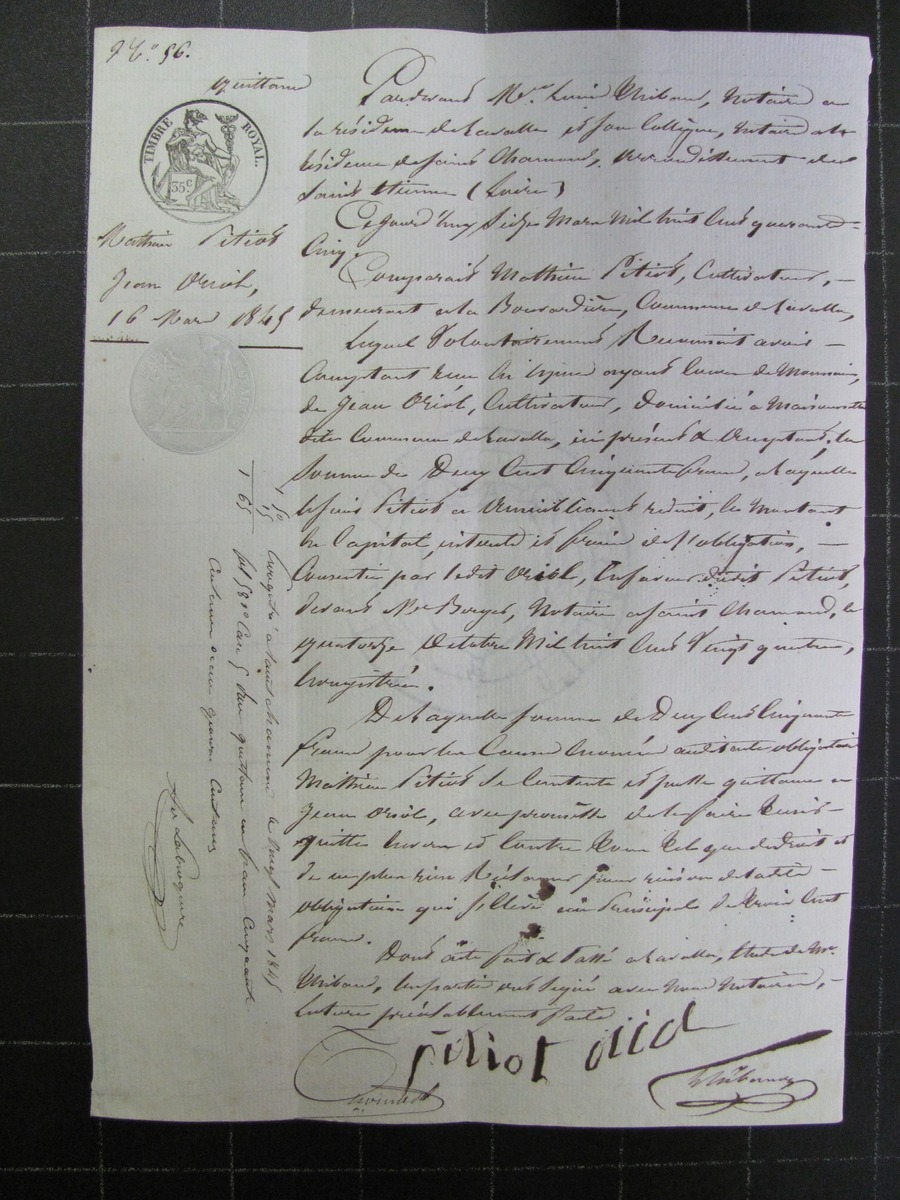 N° 56.
quittance
TIMBRE ROYAL.
35 c
Mathieu Pitiot
Jean Oriol,
16 Mars 1845
Pardevant Me Louis Thibaud, Notaire à
la résidence de Lavalla et son Collègue, Notaire à la
résidence de Saint Chamond, arrondissement de
Saint Etienne (Loire)
Cejourd'huy Seize Mars Mil huit Cent quarante-
Cinq.
Comparait Mathieu Pitiot, Cultivateur, —
demeurant à la Commune de Lavalla,
Lequel Volontairement Reconnait avoir —
Comptant reçu en espèces ayant Cours de Monnaie,
de Jean Oriol, Cultivateur, domicilié à Maisonnette
dite Commune de Lavalla, ici présent & acceptant, la
Somme de Deux Cent Cinquante francs, à laquelle
le dit Pitiot a réduit, le Montant
en Capital, intérêts et frais de l'obligation, —
Consentie par ledit Oriol, En faveur dudit Pitiot,
devant Me Berger, Notaire à Saint Chamond, le
quatorze Octobre Mil huit Cent Vingt quatre,
Enregistrée.
De laquelle somme de Deux Cent Cinquante
francs pour les Causes énoncées obligation
Mathieu Pitiot Se Contente et passe quittance à
Jean Oriol, avec promesse de le faire tenir
quitte Envers et Contre tous de droit et
de ne plus rien Réclamer pour raison de la dite —
obligation qui S'élève au Principal de trois Cent
francs.
Dont acte fait & Passé à Lavalla, Etude de Me
Thibaud, les parties ont Signé avec Nous Notaires, —
Lecture préalablement faite
pitiot oriol
1 50
15
1 65
Enregistré à Saint chamond le vingt Mars 1845
fol 58 Case 5 Reçu quittance un franc Cinquante
Centimes décime quinze Centimes